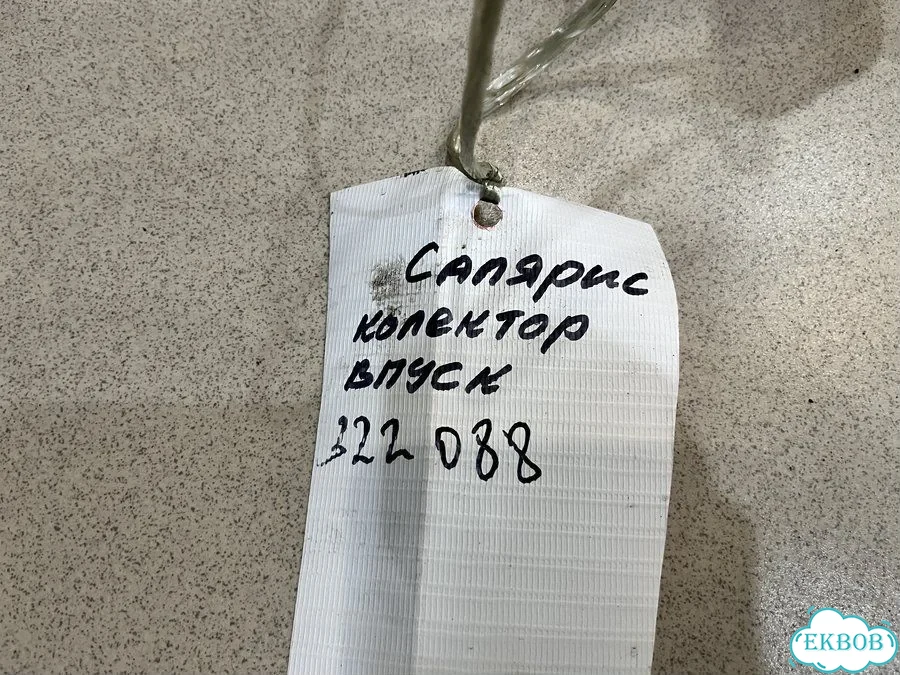 Салярис
колектор
впуск
322 088
EKBOB